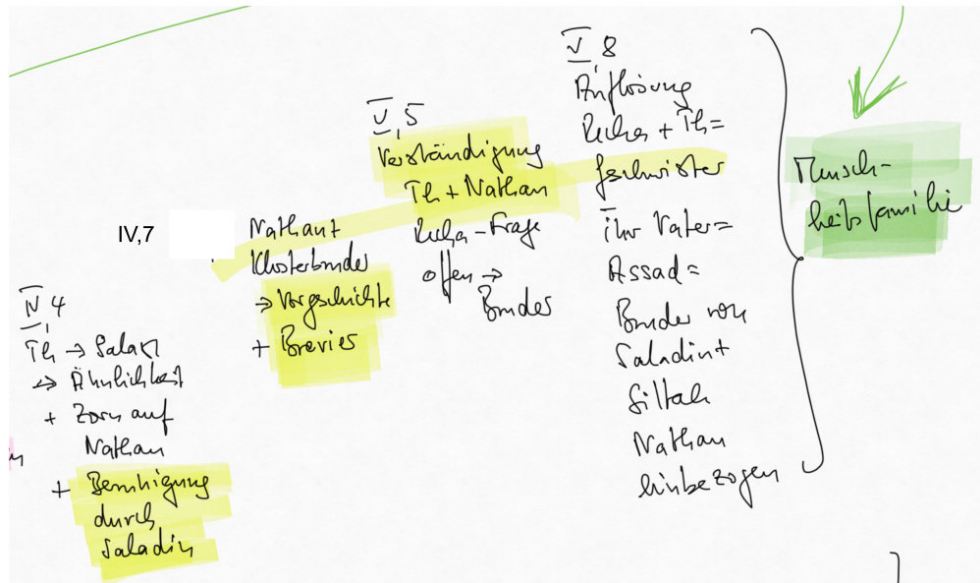 IV,4
Th → Salad
→ Ähnlichkeit
+ Zorn auf
Nathan
+ Beruhigung
durch
Saladin
IV,7
Nathan +
Klosterbruder
→ Vorgeschichte
+ Brevier
V,5
Verständigung
Th + Nathan
Recha-Frage
offen →
Bruder
V,8
Auflösung
Recha + Th =
Geschwister
ihr Vater =
Assad =
Bruder von
Saladin +
Sittah
Nathan
hinbezogen
Mensch-
heitsfamilie